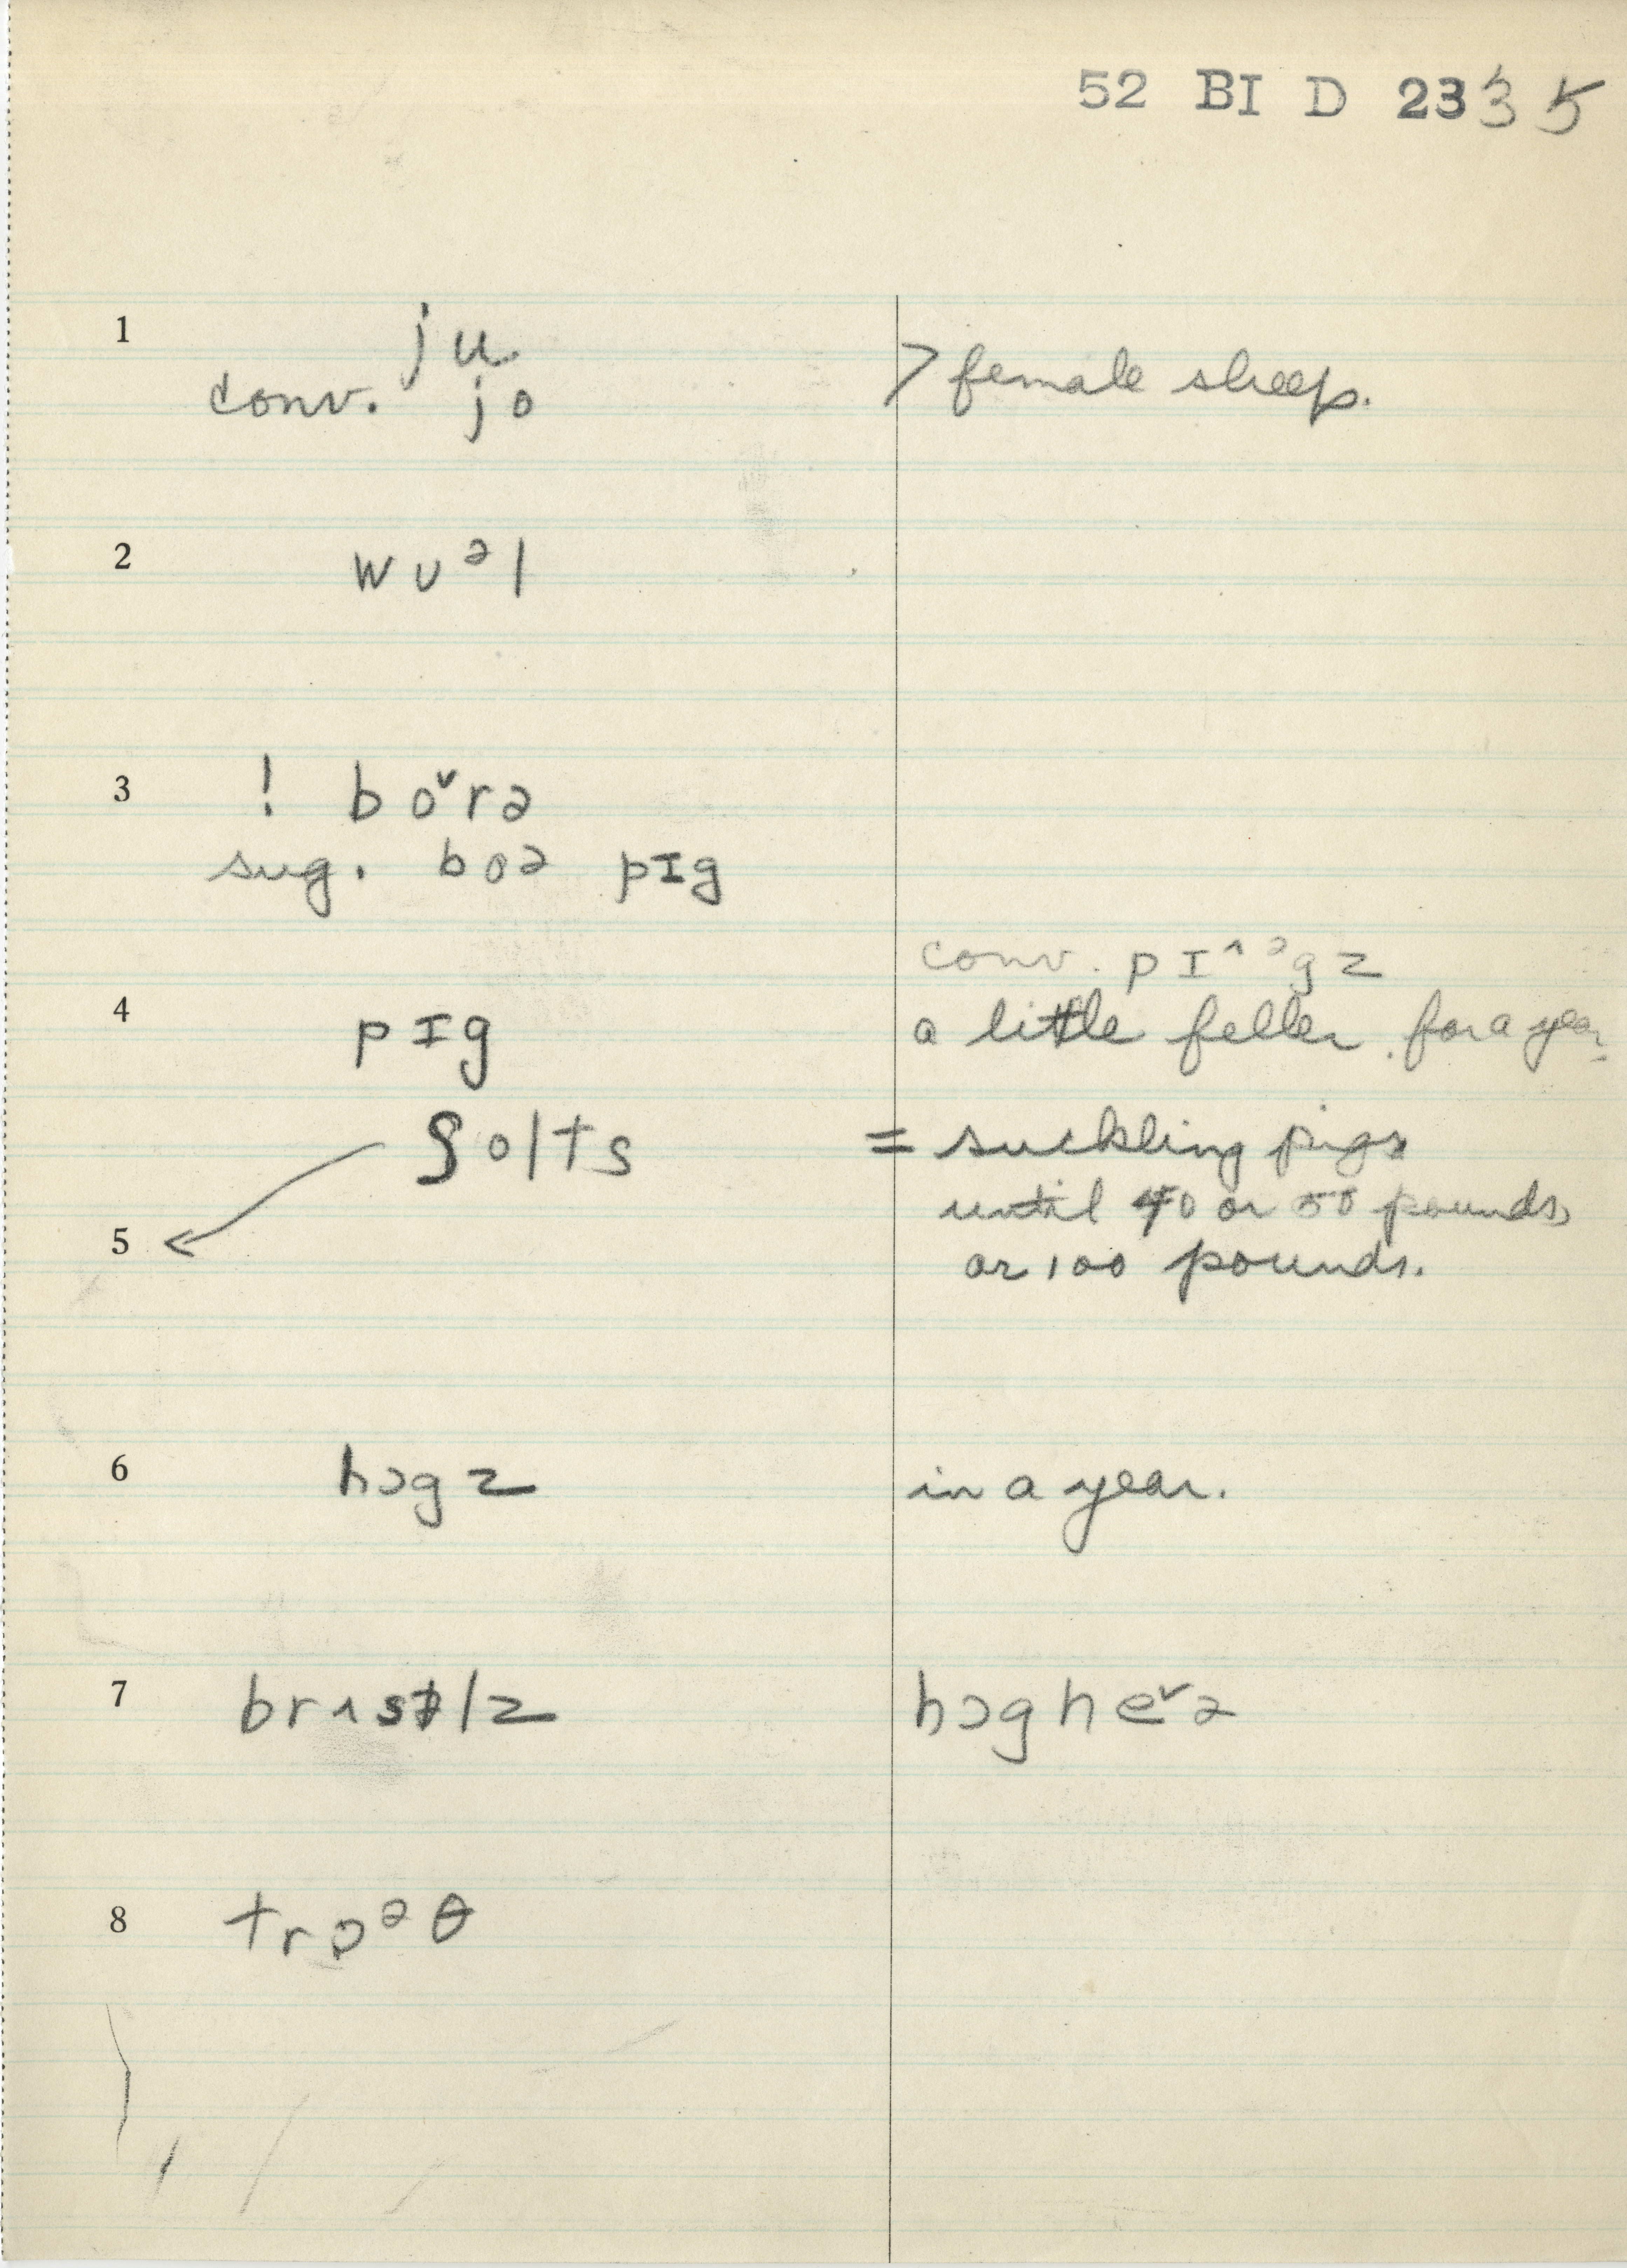 52 BI D 2335
1 ju
conv. jo > female sheep.
2 wʊᵊl
3 ! bo˅rə
sug. boə pɪg
conv. pɪ˄ᵊgz
4 pɪg a little feller for a year.
ʃolts = suckling pigs
until 40 or 50 pounds,
5 or 100 pounds.
6 hɔgz in a year.
7 hɔg he˅ə
8 trɒᵊθ